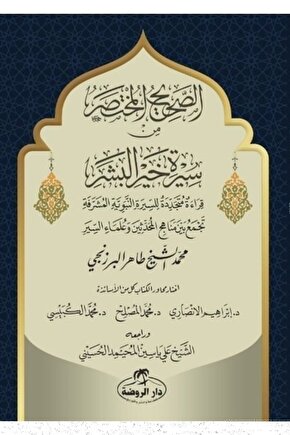 الصَّحِيحُ المُخْتَصَرُ
مِنْ
سِيرَةِ خَيْرِ البَشَرِ ﷺ
قِرَاءَةٌ مُتَجَدِّدَةٌ لِلسِّيرَةِ النَّبَوِيَّةِ المُشَرَّفَةِ
تَجْمَعُ بَيْنَ مَنَاهِجِ المُحَدِّثِينَ وَعُلَمَاءِ السِّيَرِ
محمد الشيخ طاهر البرزنجي
اختار محاور الكتاب كل من الأساتذة
د. إبراهيم الأنصاري د. محمد المصلح د. محمد الكبيسي
وراجعه
الشيخ علي ياسين المحيمد الحسيني
دار الروضة